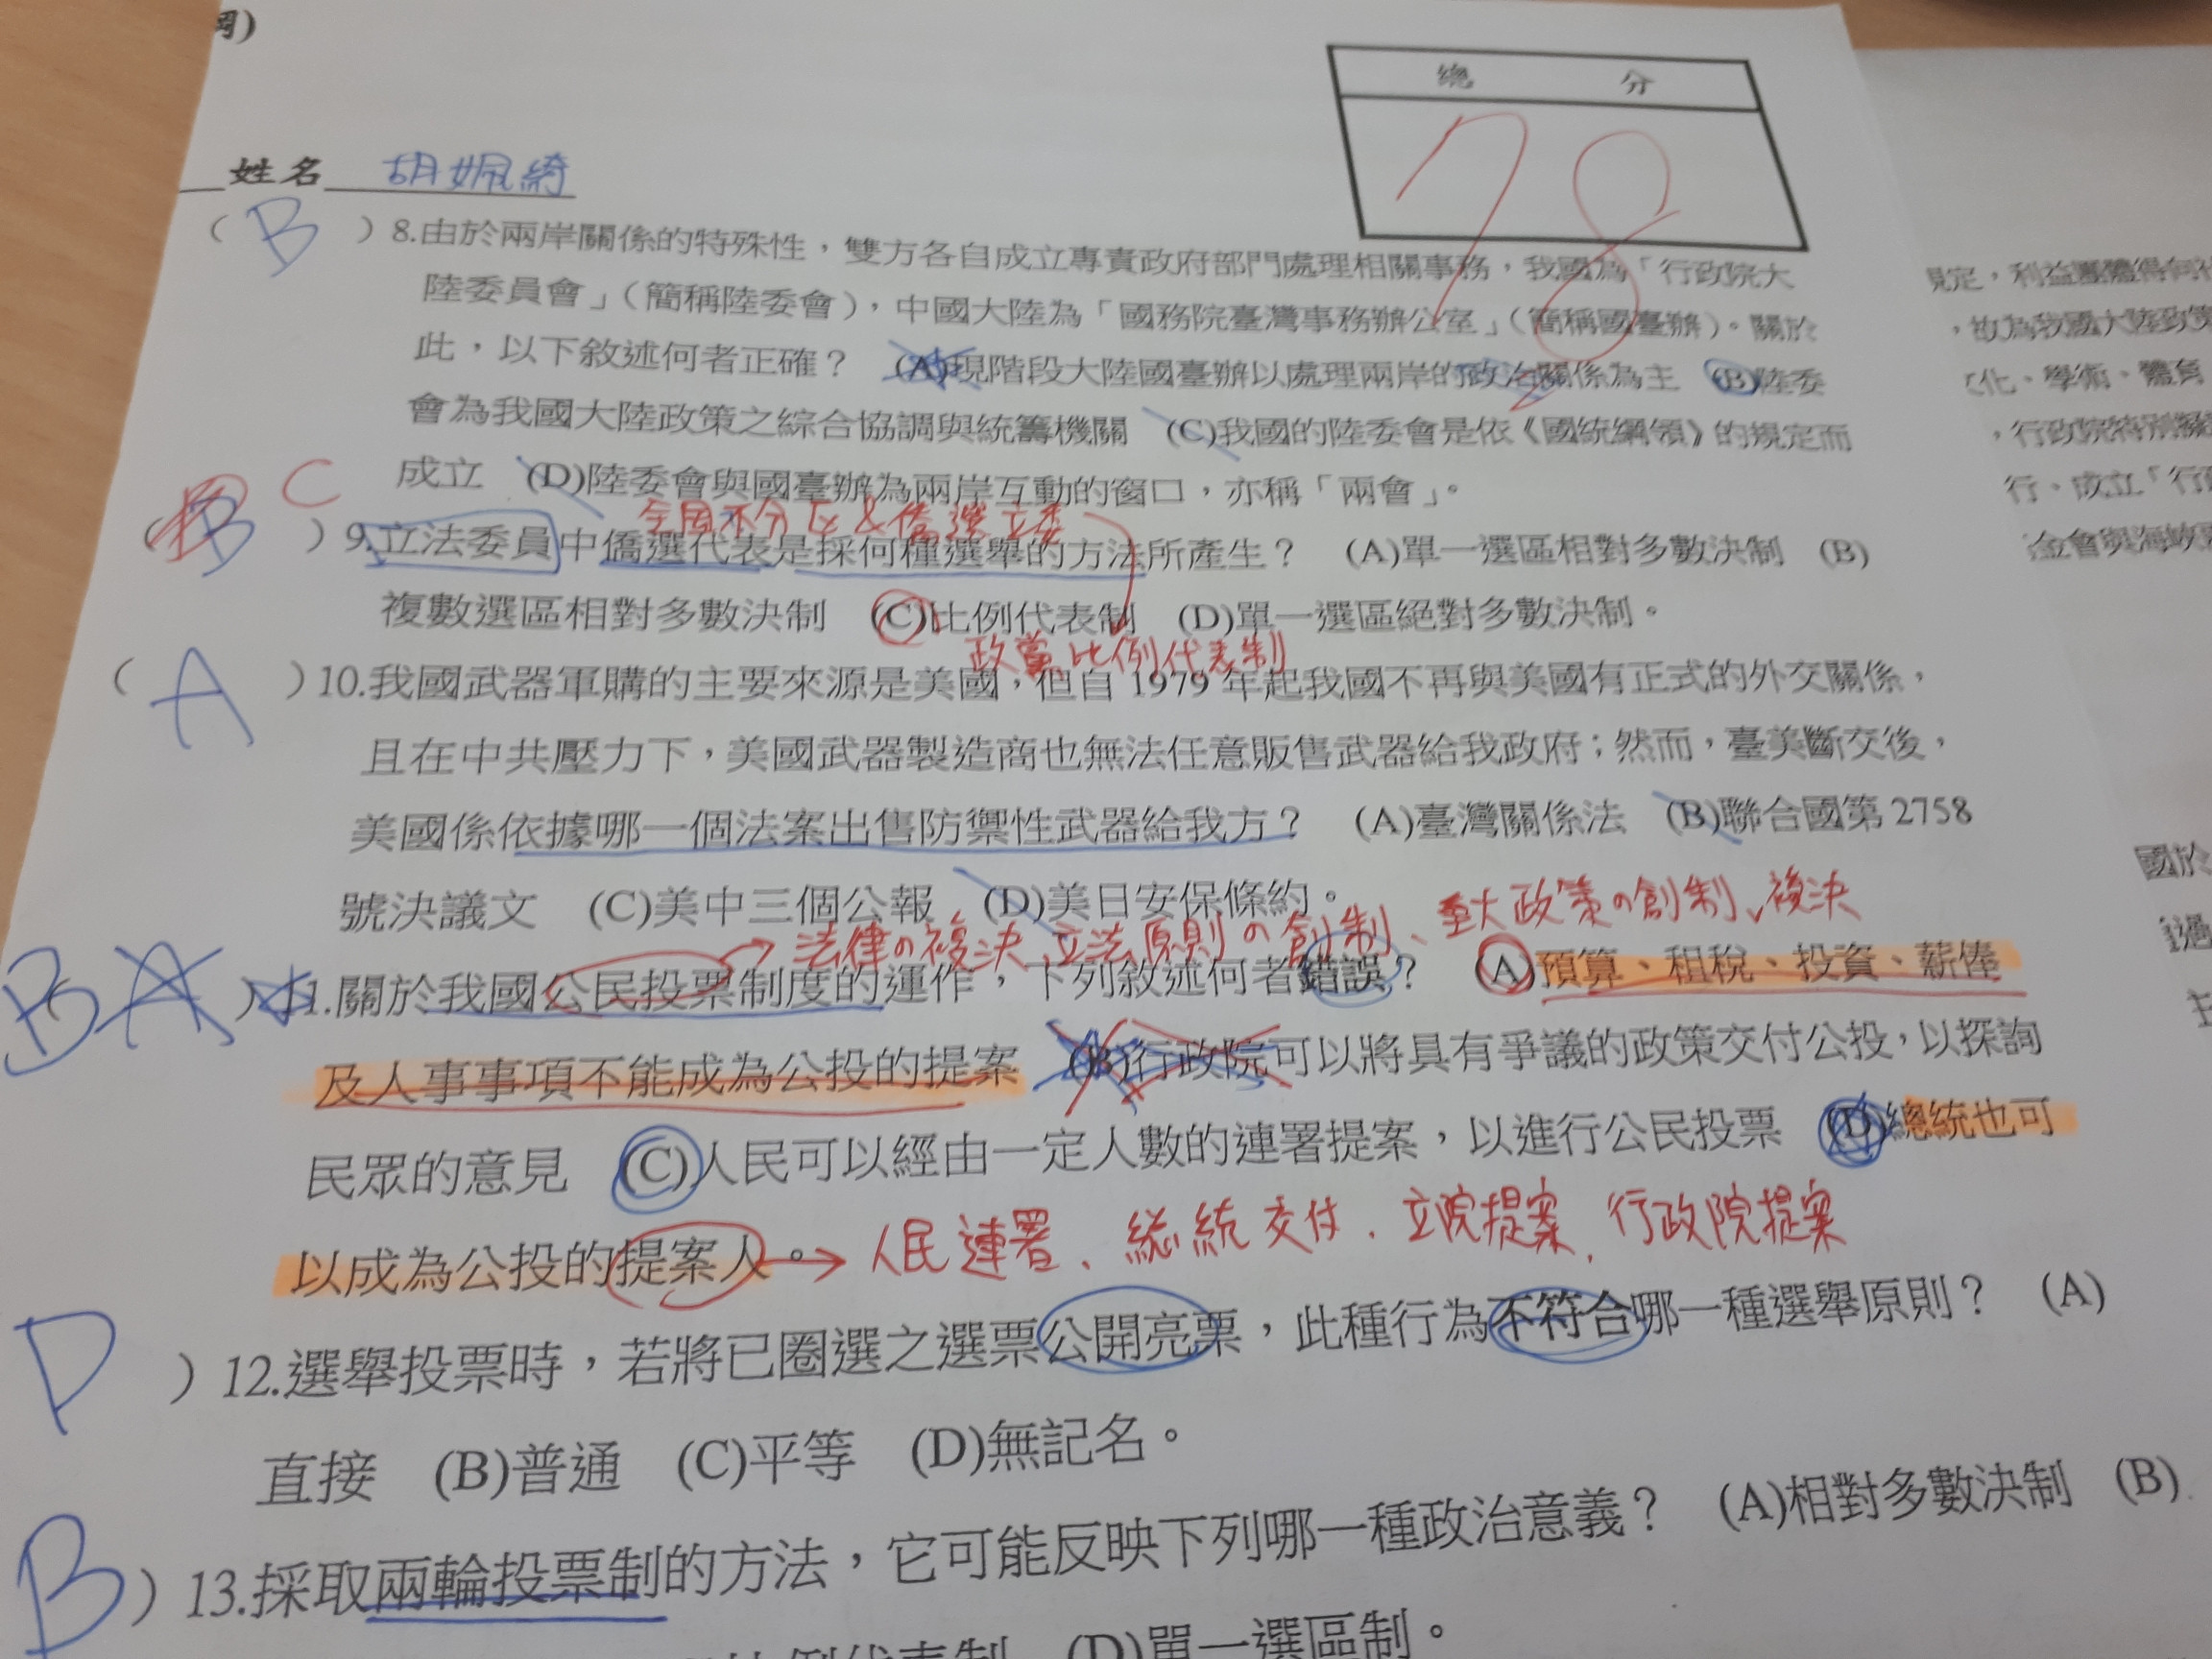 總 分
78
姓名 胡姵綺
( B )8.由於兩岸關係的特殊性，雙方各自成立專責政府部門處理相關事務，我國為「行政院大
陸委員會」(簡稱陸委會)，中國大陸為「國務院臺灣事務辦公室」(簡稱國臺辦)。關於
此，以下敘述何者正確？ (A)現階段大陸國臺辦以處理兩岸的政治關係為主 (B)陸委
會為我國大陸政策之綜合協調與統籌機關 (C)我國的陸委會是依《國統綱領》的規定而
成立 (D)陸委會與國臺辦為兩岸互動的窗口，亦稱「兩會」。
全國不分區&僑選立委
( B C )9.立法委員中僑選代表是採何種選舉的方法所產生？ (A)單一選區相對多數決制 (B)
複數選區相對多數決制 (C)比例代表制 (D)單一選區絕對多數決制。
政黨比例代表制
( A )10.我國武器軍購的主要來源是美國，但自 1979 年起我國不再與美國有正式的外交關係，
且在中共壓力下，美國武器製造商也無法任意販售武器給我政府；然而，臺美斷交後，
美國係依據哪一個法案出售防禦性武器給我方？ (A)臺灣關係法 (B)聯合國第 2758
號決議文 (C)美中三個公報 (D)美日安保條約。
→法律の複決、立法原則の創制、重大政策の創制、複決
B A )11.關於我國公民投票制度的運作，下列敘述何者錯誤？ (A)預算、租稅、投資、薪俸
及人事事項不能成為公投的提案 (B)行政院可以將具有爭議的政策交付公投，以探詢
民眾的意見 (C)人民可以經由一定人數的連署提案，以進行公民投票 (D)總統也可
以成為公投的提案人。→人民連署、総統交付、立院提案、行政院提案
D )12.選舉投票時，若將已圈選之選票公開亮票，此種行為不符合哪一種選舉原則？ (A)
直接 (B)普通 (C)平等 (D)無記名。
B )13.採取兩輪投票制的方法，它可能反映下列哪一種政治意義？ (A)相對多數決制 (B)
比例代表制 (D)單一選區制。